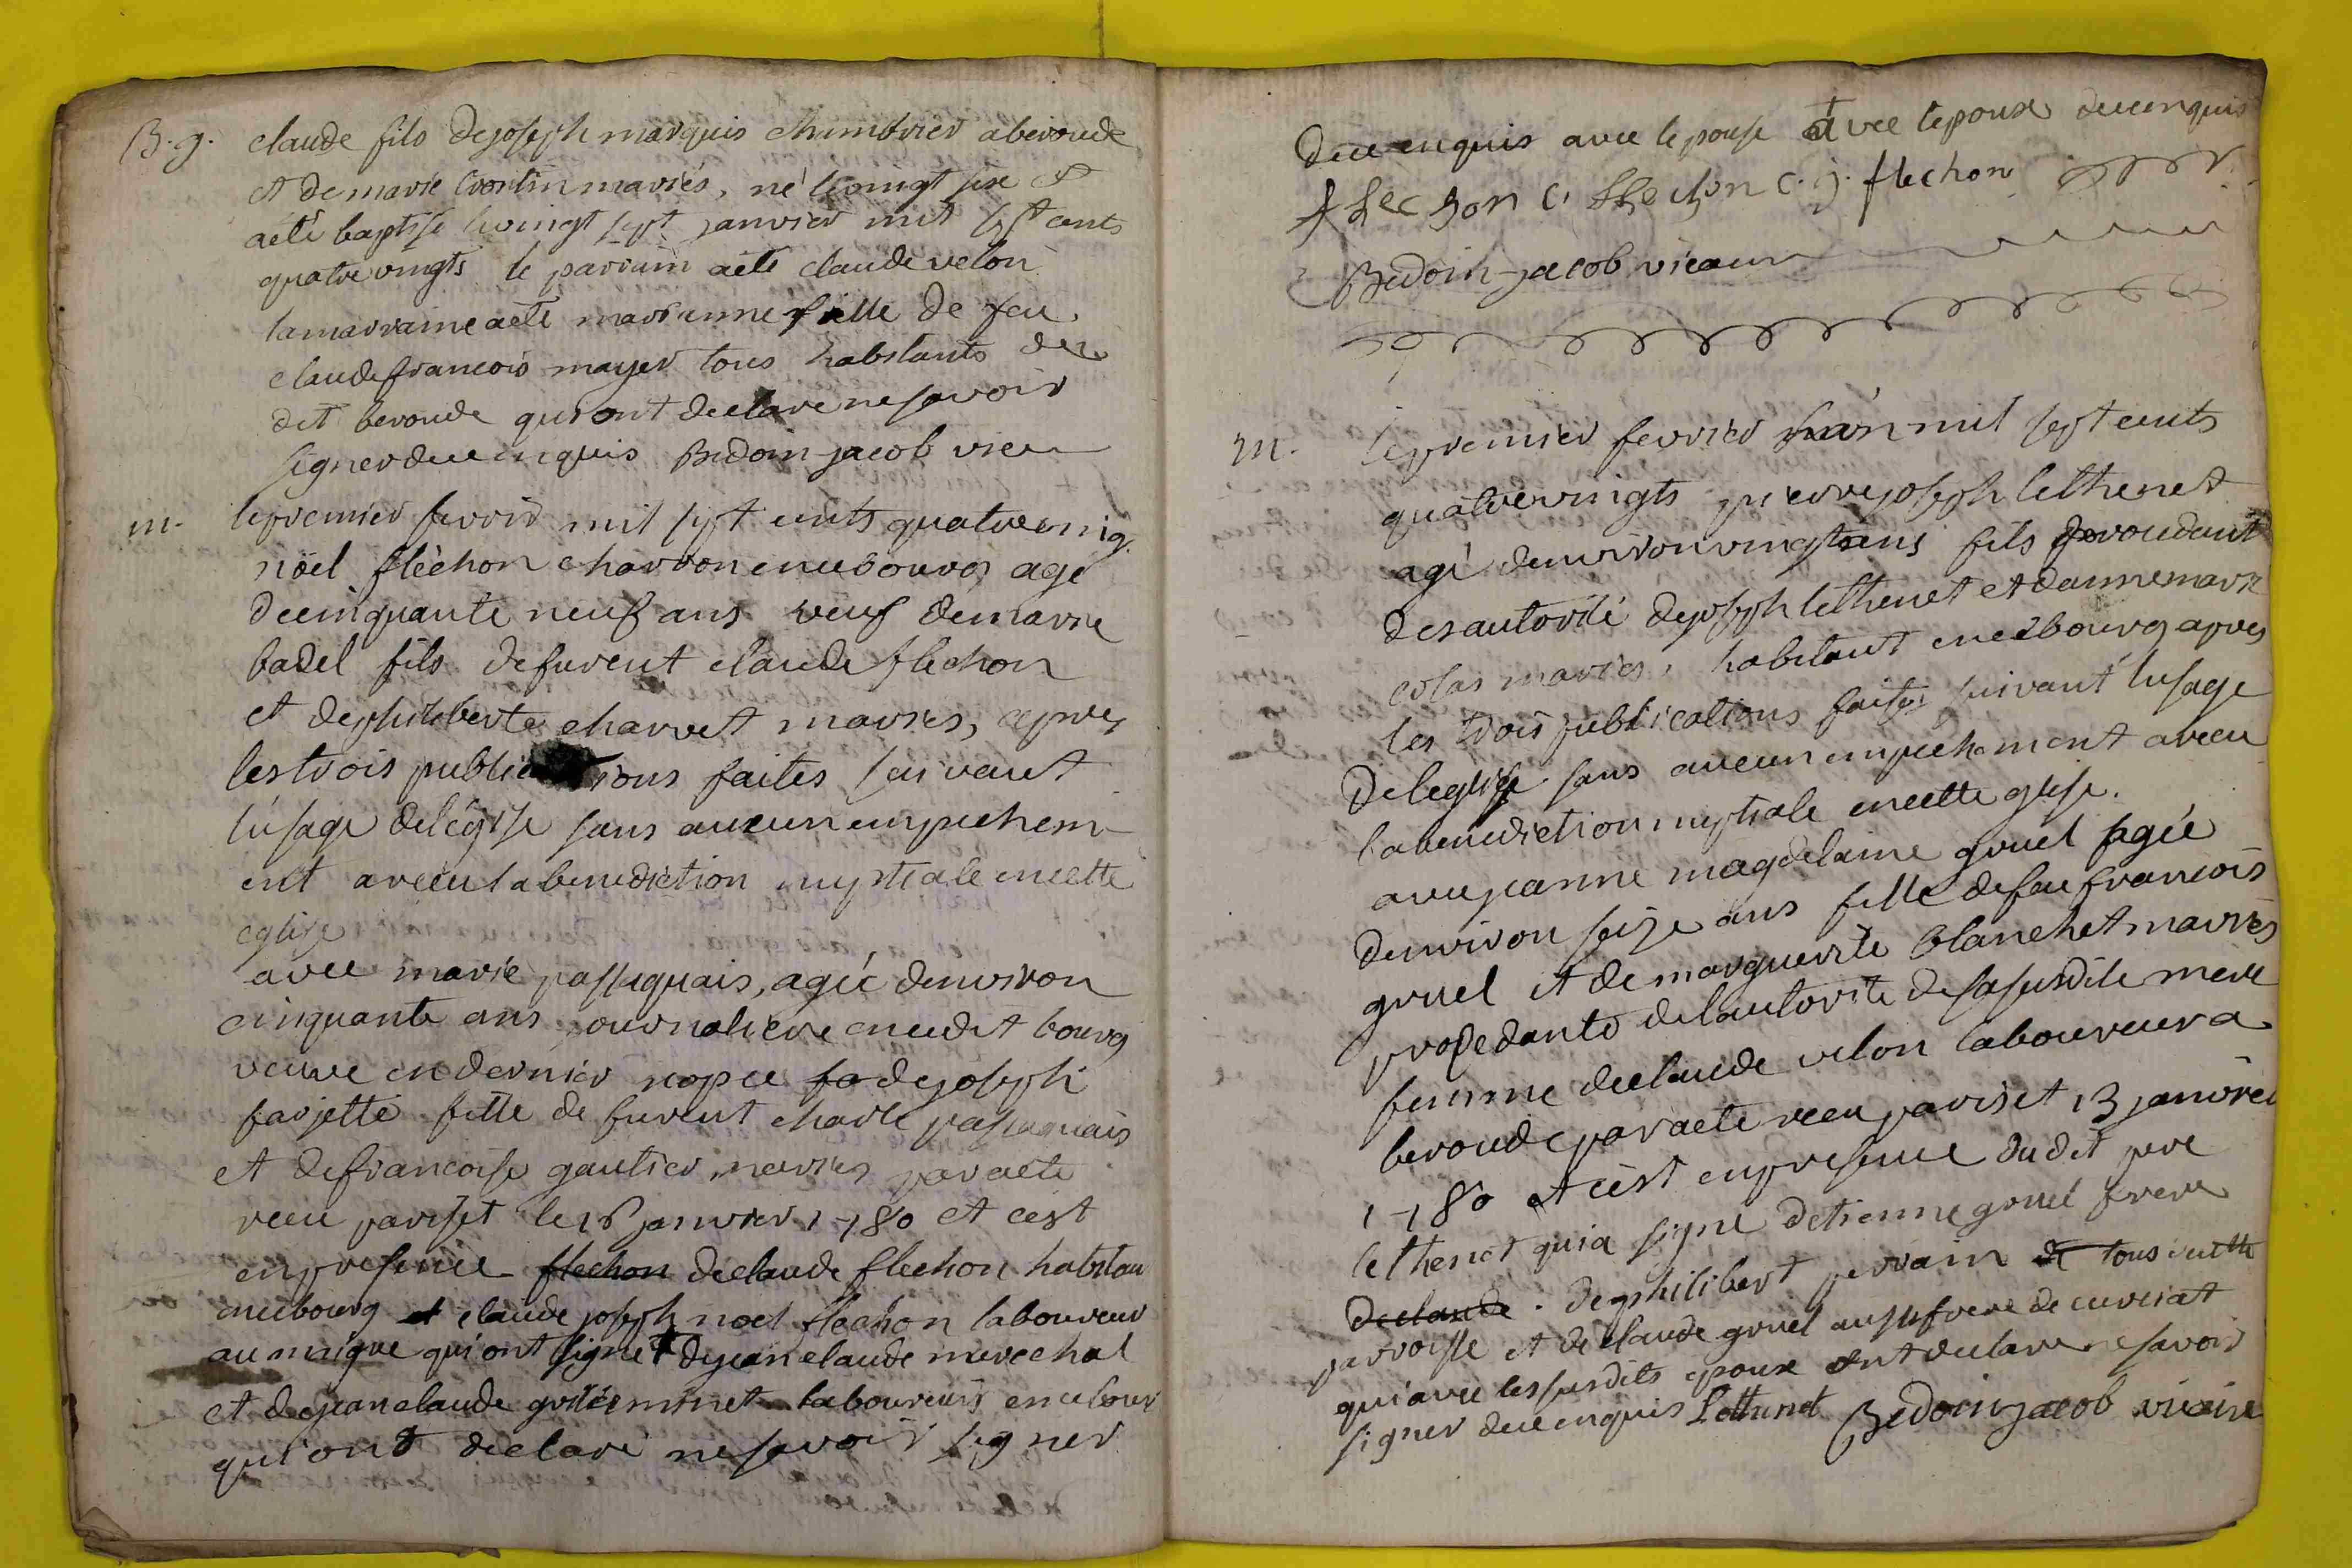 B. g. claude fils dejoseph marquis chambrier aberoude
et de marie trontin mariés, né le vingt six et
aété baptise levingt sept janvier mil sept cents
quatre vingts le parrain aété claude velon
lamarraine aété marianne fille de feu
claudefrancois mayer tous habitants du
dit beroude qui ont declare ne savoir
signer dece enquis Bidoin-jacob vicai
m. le premier fevrier mil sept cents quatrevinig
nöel flèchon charron encebourg agé
decinquante neuf ans veuf demarie
badel fils defurent claude flechon
et dephiliberte charvet maries, apres
lestrois publications faites suivant
lusage delégise sans aucun empechem-
ent areceu labenediction nuptiale encette
eglise
avec marie passaquais, agée denviron
cinquante ans journaliere encedit bourg
veuve endernier nopce fo dejoseph
farjette fille de furent charle passaquais
et defrancoise gautier maries paracte
receu pariset le 16 janvier 1780 et cest
enpresence flechon declaude flechon habitan
encebourg et claude joseph noel flechon laboureur
au maigre qui ont signe et dejean claude merechal
et de jean claude guilleminet laboureurs encebour
qui ont declaré ne savoir signer
dece enquis avec lepouse avec lepoux decenquis
flechon c. flechon c. j. flechon
Bidoin-jacob vicaire
m. le premier fevrier mil sept cents
quatrevingts pierrejoseph lethenet
agé denvironvingtans fils procedant
desautorité dejoseph lethenet et danne marie
colas mariés, habitant encebourg apres
les trois publications faites suivant lusage
deleglise sans aucun empechement areceu
labenediction nuptiale encette glise.
avec jeanne magdelaine gruel agée
denviron seize ans fille defeu francois
gruel et de marguerite blanchet mariés
procedante delautorite desasusdite mere
femme declaude velon laboureur a
beroude paracte receu pariset 13 janvier
1780 et cest enpresence dudit pere
lethenet quia signe detienne gruel frere
declaude . dephilibert perrain de tous cette
parroisse et de claude gruel aussi frere de curciat
qui avec les susdits epoux ont declare ne savoir
signer dece enquis Lethenet Bidoin jacob vicaire